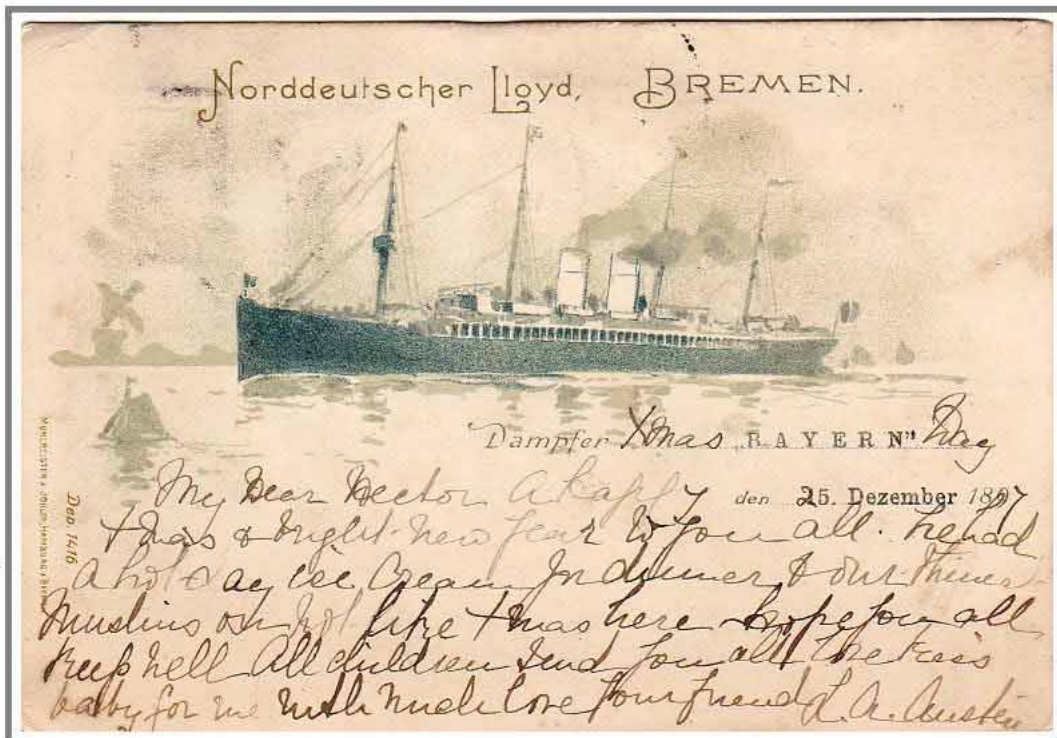 Norddeutscher Lloyd, BREMEN.
Dampfer Xmas „BAYERN" Day
den 25. Dezember 1897
My Dear Hector A Happy
Xmas & bright new year to you all. We had
a hot day ice cream for dinner & our
Muslins on not like Xmas here hope you all
keep well All children send you all love kiss
baby for me with much love your friend L. A. Austen
Dep. 1416